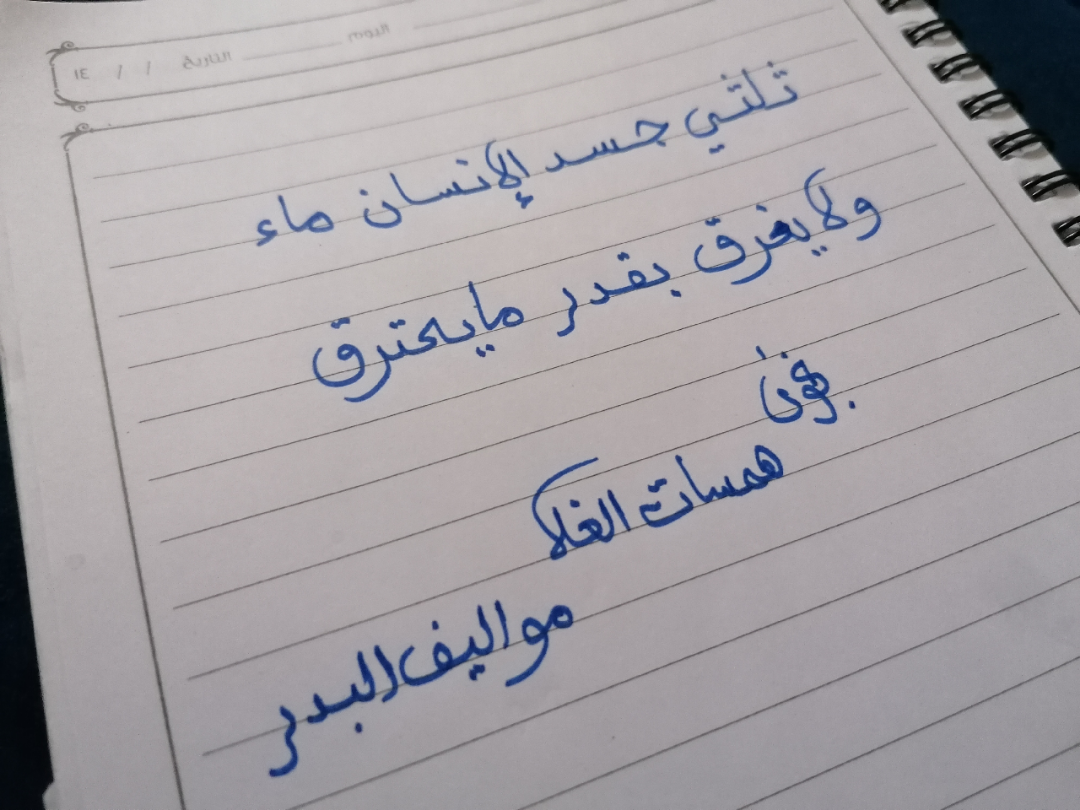 اليوم التاريخ / / ١٤
ثلثي جسد الإنسان ماء
ولا يغرق بقدر ما يحترق
همسات الغلا
مواليف البدر